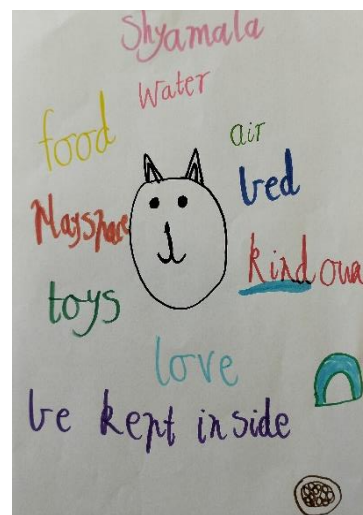 Shyamala
Water
food
air
bed
Playspace
kind
toys
love
be kept inside